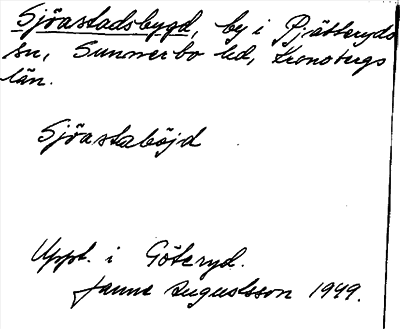 Sjöastadsbygd, by i Pjätteryds
sn, Sunnerbo hd, Kronobergs
län.
Sjöastaböjd
Uppt. i Göteryd.
Janne Augustsson 1949.